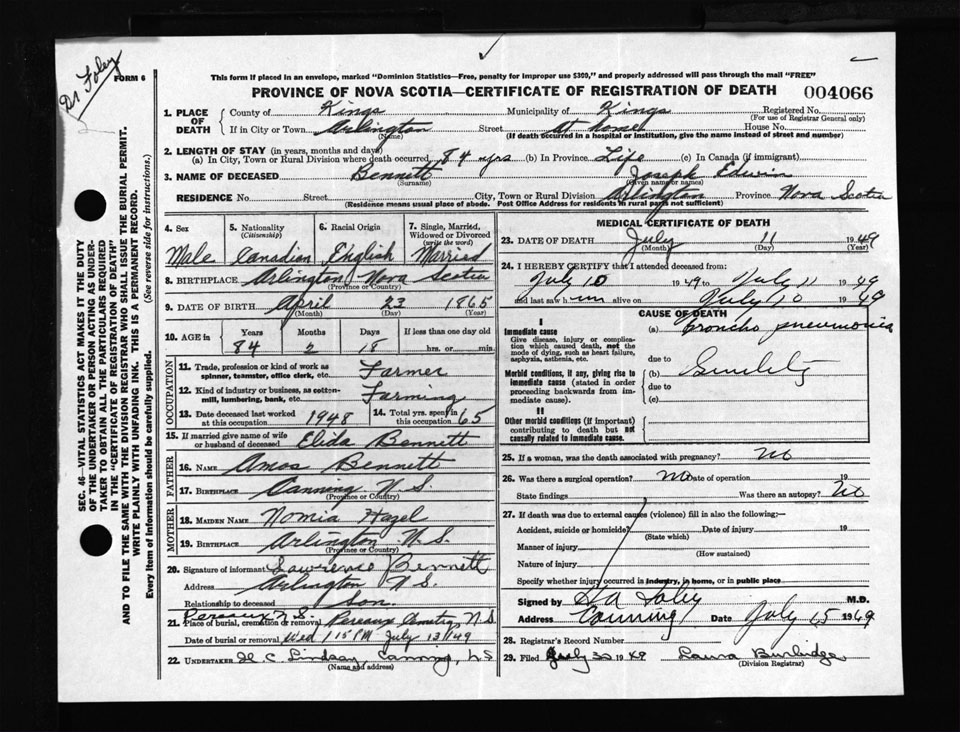 Dr Foley
FORM 6
This form if placed in an envelope, marked "Dominion Statistics—Free, penalty for improper use $300," and properly addressed will pass through the mail "FREE"
PROVINCE OF NOVA SCOTIA—CERTIFICATE OF REGISTRATION OF DEATH 004066
1. PLACE OF DEATH County of Kings Municipality of Kings Registered No.
(For use of Registrar General only)
If in City or Town Arlington Street at home House No.
(Name) (If death occurred in a hospital or institution, give the name instead of street and number)
2. LENGTH OF STAY (in years, months and days)
(a) In City, Town or Rural Division where death occurred 84 yrs (b) In Province Life (c) In Canada (if immigrant)
3. NAME OF DECEASED Bennett Joseph Edwin
(Surname) (Given name or names)
RESIDENCE No. Street City, Town or Rural Division Arlington Province Nova Scotia
(Residence means usual place of abode. Post Office Address for residents in rural parts not sufficient)
SEC. 46—VITAL STATISTICS ACT MAKES IT THE DUTY
OF THE UNDERTAKER OR PERSON ACTING AS UNDER-
TAKER TO OBTAIN ALL THE PARTICULARS REQUIRED
IN THE "CERTIFICATE OF REGISTRATION OF DEATH"
AND TO FILE THE SAME WITH THE DIVISION REGISTRAR WHO SHALL ISSUE THE BURIAL PERMIT.
WRITE PLAINLY WITH UNFADING INK. THIS IS A PERMANENT RECORD.
Every item of information should be carefully supplied. (See reverse side for instructions.)
4. Sex 5. Nationality (Citizenship) 6. Racial Origin 7. Single, Married, Widowed or Divorced (write the word)
Male Canadian English Married
8. BIRTHPLACE Arlington Nova Scotia
(Province or Country)
9. DATE OF BIRTH April 23 1865
(Month) (Day) (Year)
10. AGE in Years Months Days If less than one day old
84 2 18 hrs. or min.
OCCUPATION
11. Trade, profession or kind of work as spinner, teamster, office clerk, etc. Farmer
12. Kind of industry or business, as cotton-mill, lumbering, bank, etc. Farming
13. Date deceased last worked at this occupation 1948 14. Total yrs. spent in this occupation 65
15. If married give name of wife or husband of deceased Elida Bennett
FATHER
16. NAME Amos Bennett
17. BIRTHPLACE Canning N.S.
(Province or Country)
MOTHER
18. MAIDEN NAME Nomia Hazel
19. BIRTHPLACE Arlington N.S.
(Province or Country)
20. Signature of informant Lawrence Bennett
Address Arlington N.S.
Relationship to deceased Son.
Pereaux N.S.
21. Place of burial, cremation or removal Pereaux Cemetry N.S.
Date of burial or removal Wed 1 15 PM July 13/49
22. UNDERTAKER H. C. Lindsay Canning, N.S.
(Name and address)
MEDICAL CERTIFICATE OF DEATH
23. DATE OF DEATH July 11 1949
(Month) (Day) (Year)
24. I HEREBY CERTIFY that I attended deceased from:
July 10 1949 to July 11 1949
and last saw him alive on July 10 1949
CAUSE OF DEATH
I
Immediate cause (a) Broncho pneumonia
Give disease, injury or complication which caused death, not the mode of dying, such as heart failure, asphyxia, asthenia, etc.
due to
Morbid conditions, if any, giving rise to immediate cause (stated in order proceeding backwards from immediate cause). (b) Senility
due to
(c)
II
Other morbid conditions (if important) contributing to death but not causally related to immediate cause.
25. If a woman, was the death associated with pregnancy? No
26. Was there a surgical operation? No Date of operation 19
State findings Was there an autopsy? No
27. If death was due to external causes (violence) fill in also the following:—
Accident, suicide or homicide? Date of injury 19
(State which)
Manner of injury
(How sustained)
Nature of injury
Specify whether injury occurred in industry, in home, or in public place
Signed by H A Foley M.D.
Address Canning Date July 15 1949
28. Registrar's Record Number
29. Filed July 30 1949 Laura Burbidge
(Division Registrar)